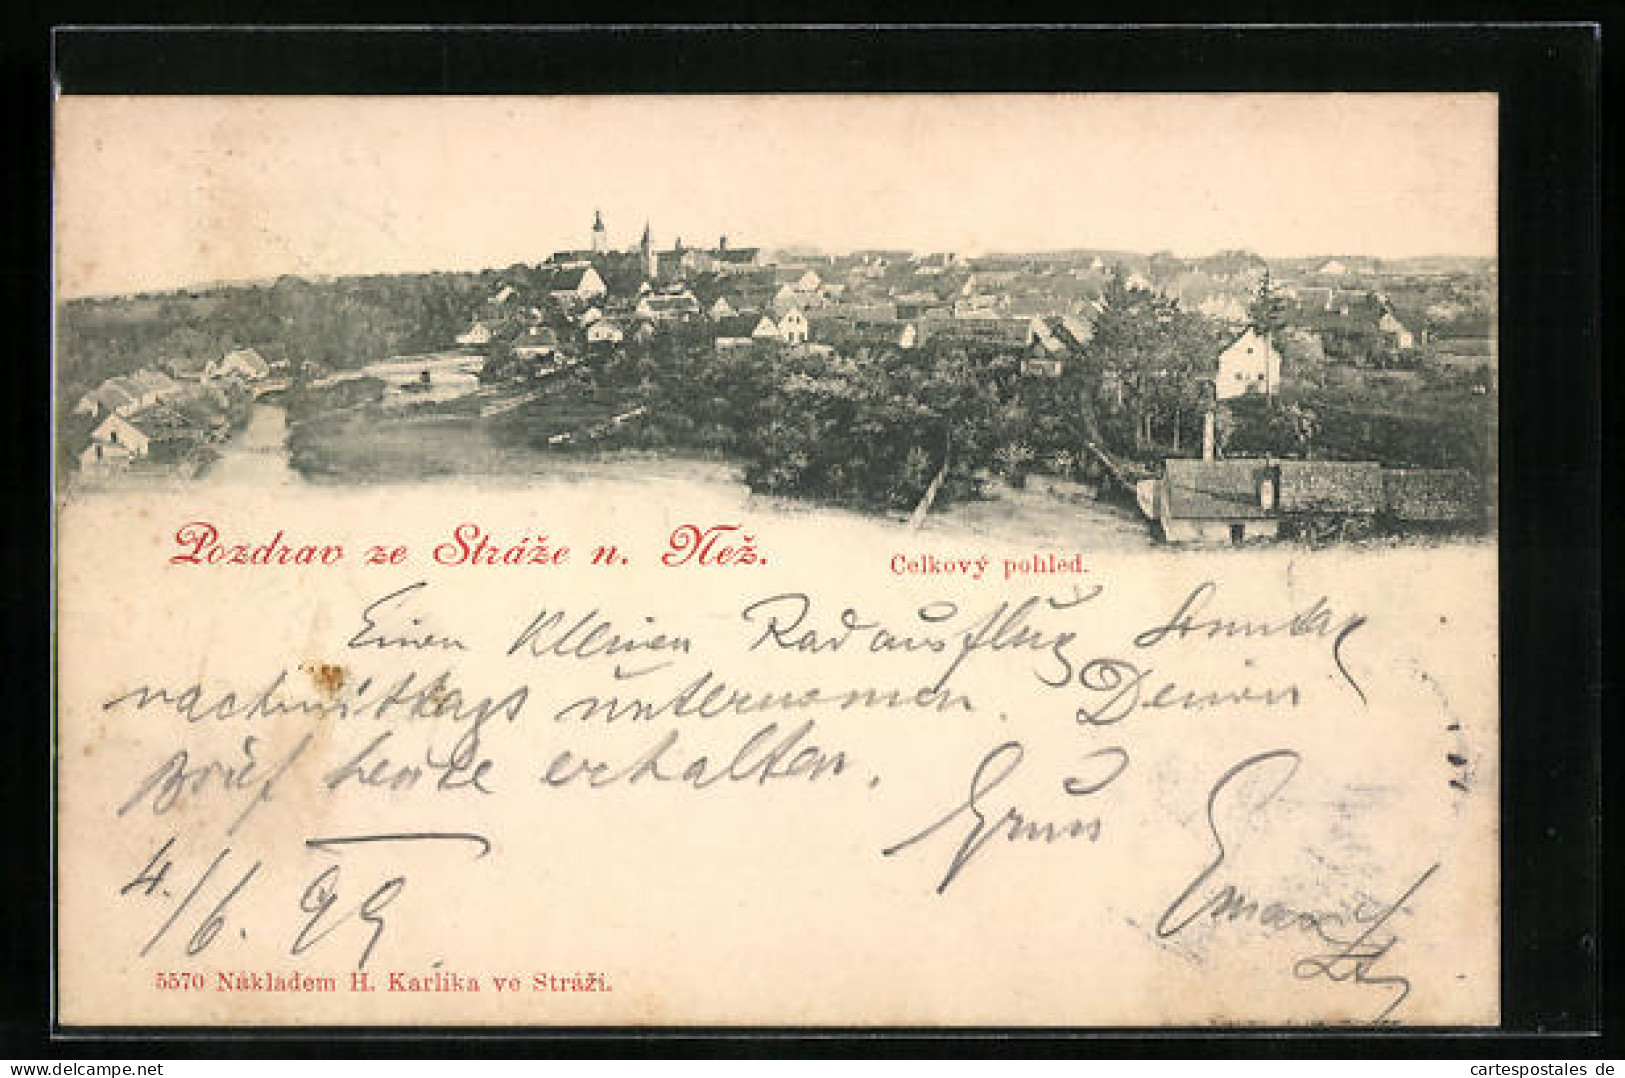 Pozdrav ze Stráže n. Než.
Celkový pohled.
Einen kleinen Radausflug Sonntag
nachmittags unternomen. Deinen
Brief heute erhalten.
Gruss
4./6. 99
5570 Nákladem H. Karlíka ve Stráži.
cartespostales.de